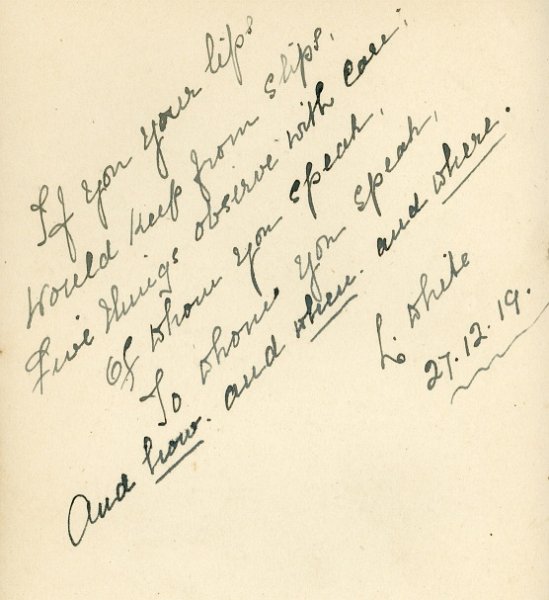 If you your lips
Would keep from slips,
Five things observe with care;
Of whom you speak,
To whom you speak,
And how. and when. and where.
L. White
27.12.19.